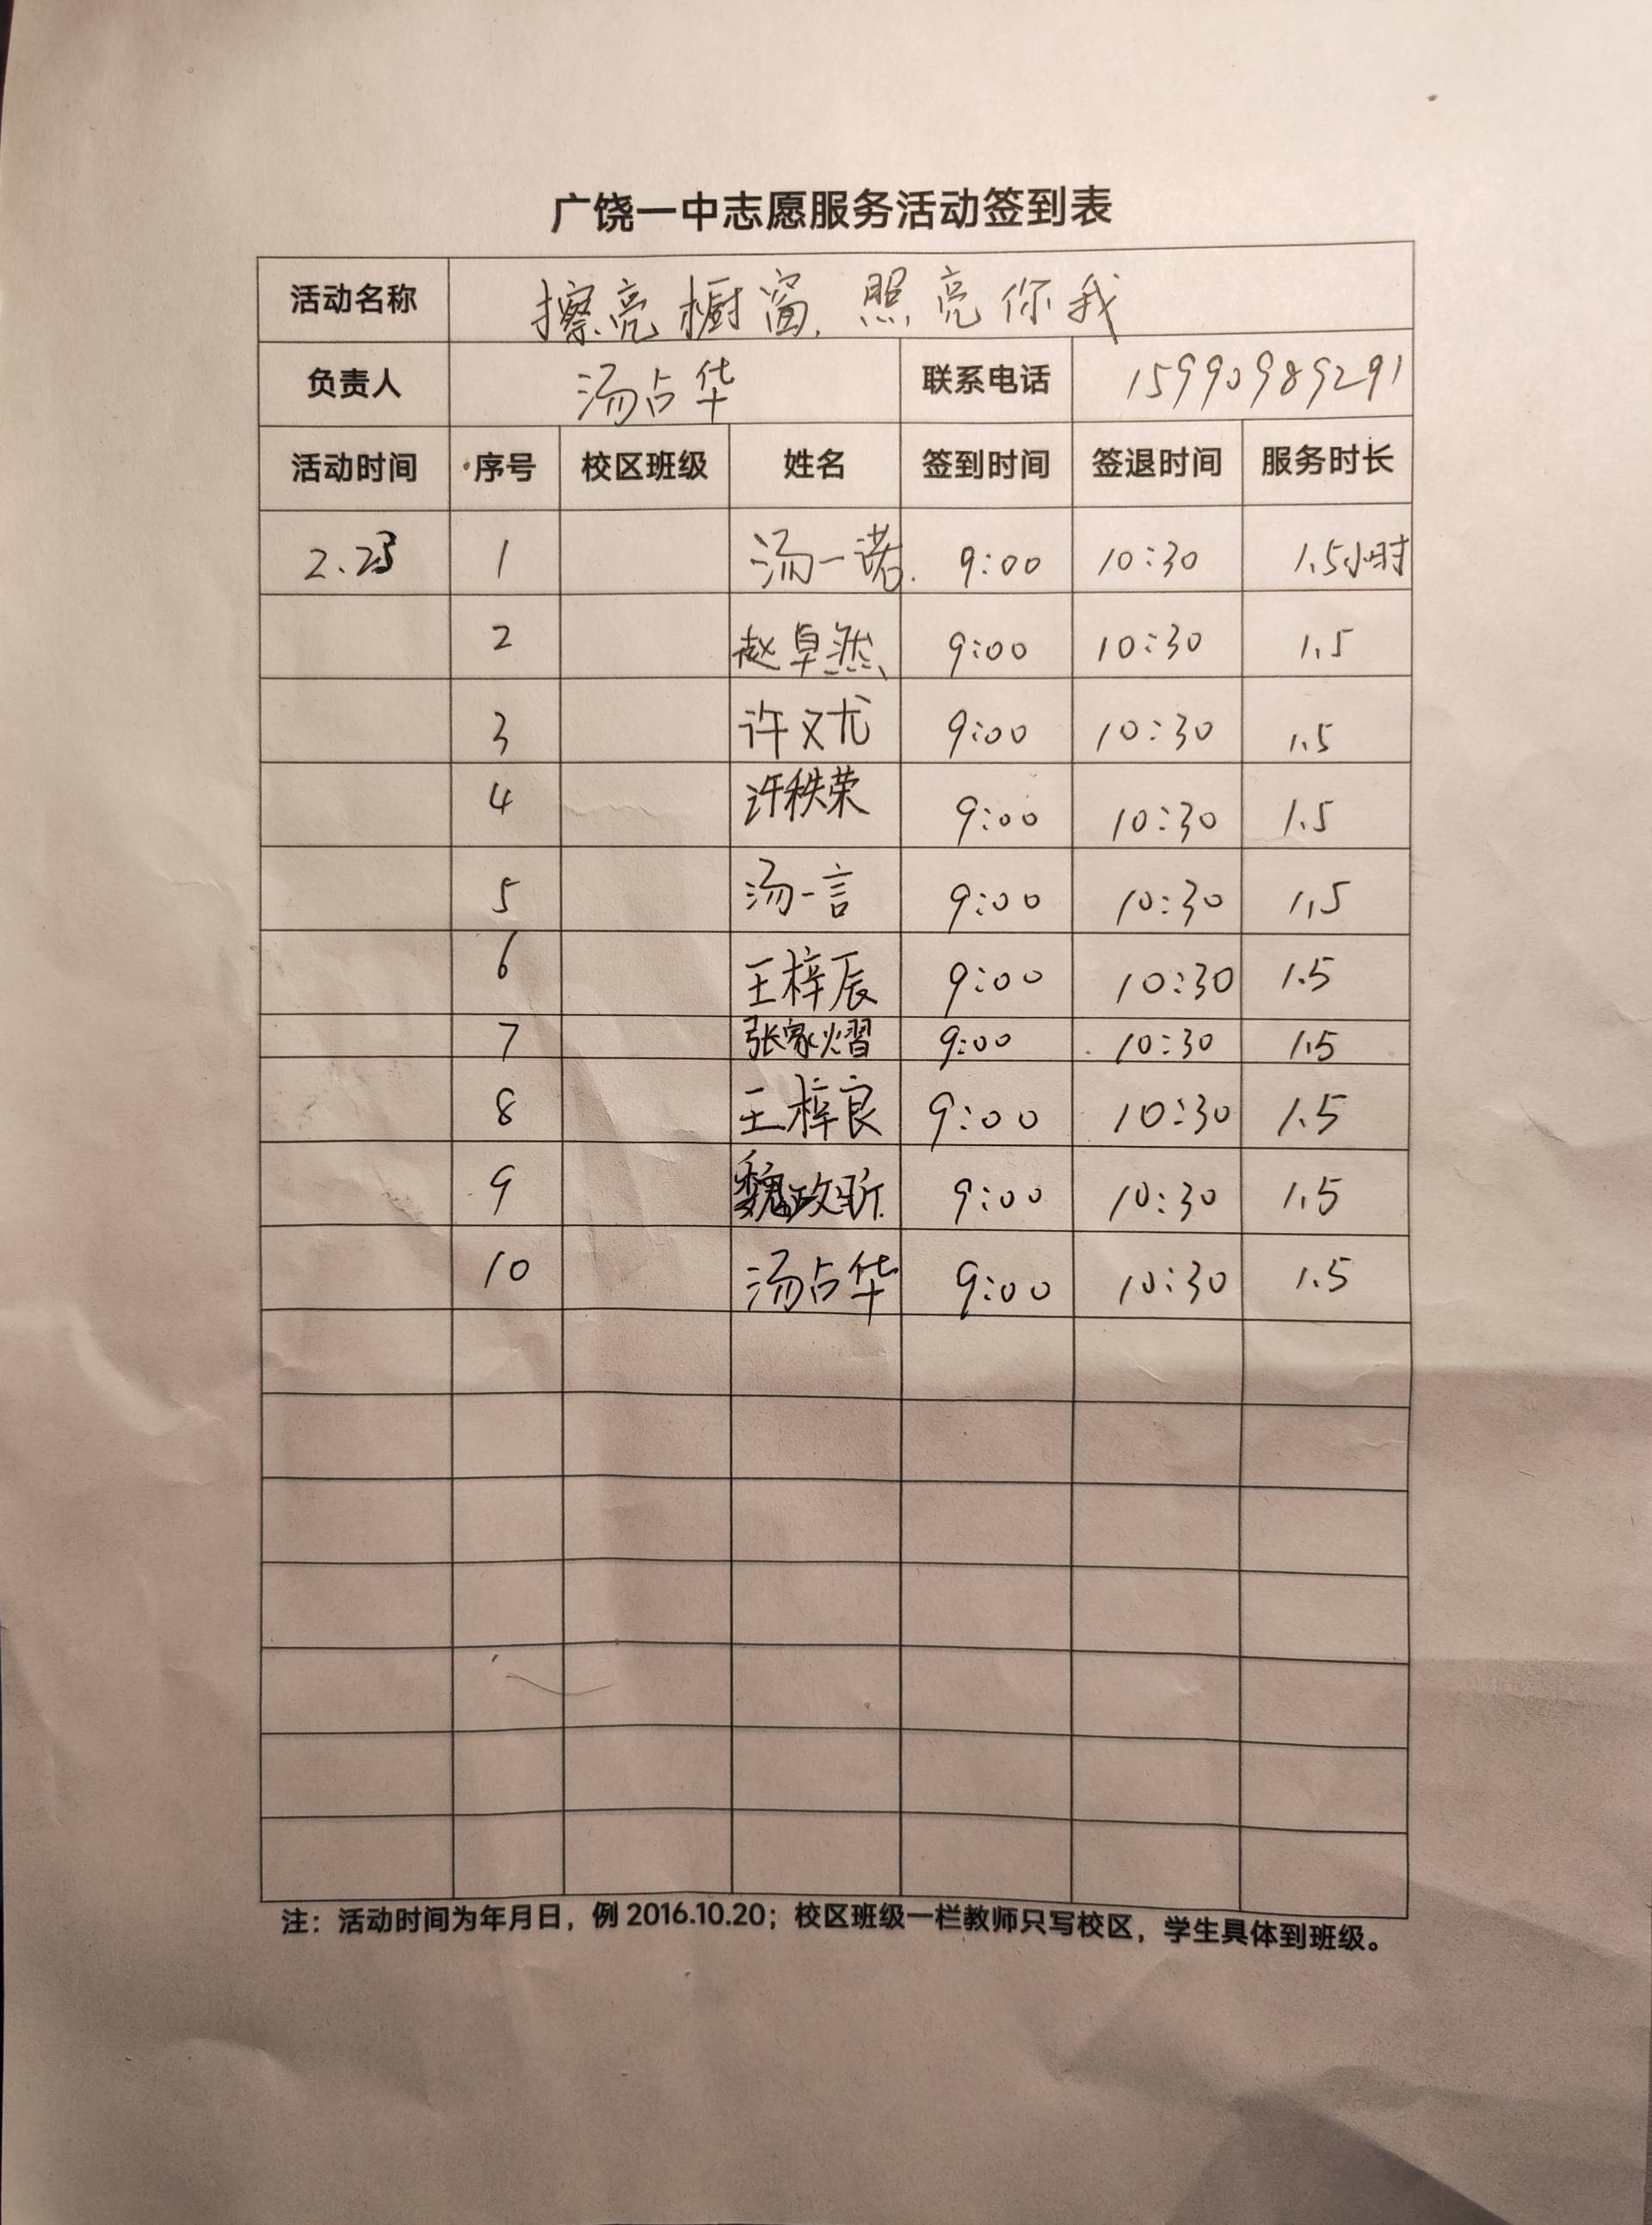 广饶一中志愿服务活动签到表
活动名称 擦亮橱窗,照亮你我
负责人 汤占华 联系电话 15990989291
活动时间 序号 校区班级 姓名 签到时间 签退时间 服务时长
2.23 1 汤一诺 9:00 10:30 1.5小时
2 赵卓然 9:00 10:30 1.5
3 许文尤 9:00 10:30 1.5
4 许秩荣 9:00 10:30 1.5
5 汤一言 9:00 10:30 1.5
6 王梓辰 9:00 10:30 1.5
7 张家熠 9:00 10:30 1.5
8 王梓良 9:00 10:30 1.5
9 魏政昕 9:00 10:30 1.5
10 汤占华 9:00 10:30 1.5
注：活动时间为年月日，例 2016.10.20；校区班级一栏教师只写校区，学生具体到班级。